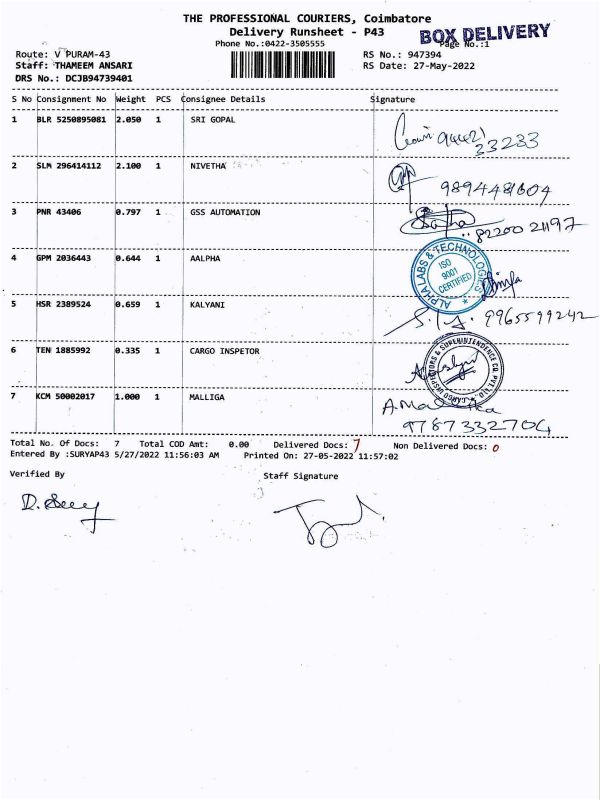 THE PROFESSIONAL COURIERS, Coimbatore
Delivery Runsheet - P43
BOX DELIVERY
Phone No.:0422-3505555
Page No.:1
Route: V PURAM-43
RS No.: 947394
Staff: THAMEEM ANSARI
RS Date: 27-May-2022
DRS No.: DCJB94739401
S No Consignment No Weight PCS Consignee Details Signature
1 BLR 5250895081 2.050 1 SRI GOPAL
33233
2 SLM 296414112 2.100 1 NIVETHA
9894481604
3 PNR 43406 0.797 1 GSS AUTOMATION
82200 21197
4 GPM 2036443 0.644 1 AALPHA
ALPHA LABS & TECHNOLOGIES
ISO
9001
CERTIFIED
5 HSR 2389524 0.659 1 KALYANI
9965599242
6 TEN 1885992 0.335 1 CARGO INSPETOR
CARGO INSPECTORS & SUPERINTENDENCE CO. PVT. LTD.
7 KCM 50002017 1.000 1 MALLIGA
9787332704
Total No. Of Docs: 7 Total COD Amt: 0.00 Delivered Docs: 7 Non Delivered Docs: 0
Entered By :SURYAP43 5/27/2022 11:56:03 AM Printed On: 27-05-2022 11:57:02
Verified By Staff Signature